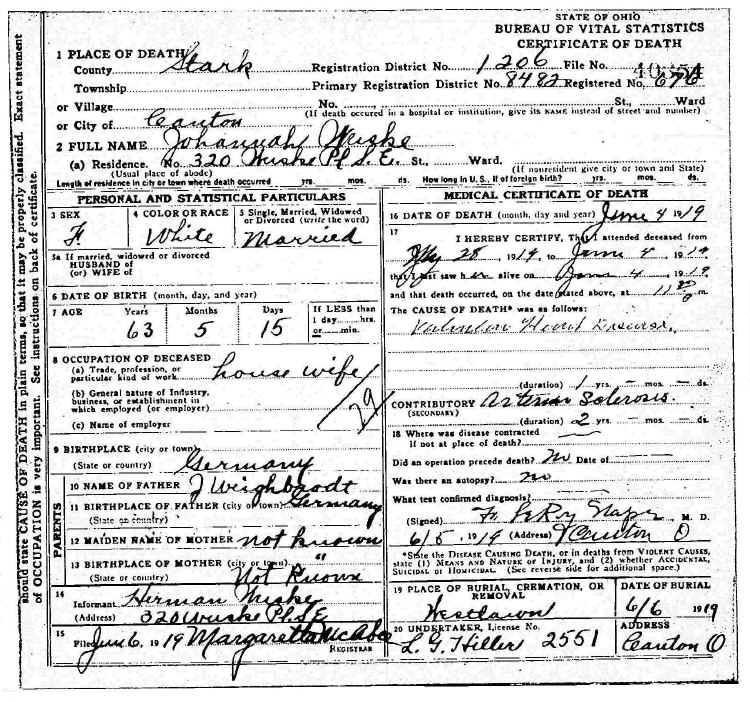 STATE OF OHIO
BUREAU OF VITAL STATISTICS
CERTIFICATE OF DEATH
1 PLACE OF DEATH
County Stark Registration District No. 1206 File No.
Township Primary Registration District No. 8482 Registered No. 676
or Village No. St., Ward
(If death occured in a hospital or institution, give its NAME instead of street and number)
or City of Canton
2 FULL NAME Johannah Wiske
(a) Residence. No. 320 Wiske Pl S.E. St., Ward.
(Usual place of abode) (If nonresident give city or town and State)
Length of residence in city or town where death occurred yrs. mos. ds. How long in U. S., if of foreign birth? yrs. mos. ds.
PERSONAL AND STATISTICAL PARTICULARS
3 SEX
F.
4 COLOR OR RACE
White
5 Single, Married, Widowed
or Divorced (write the word)
Married
5a If married, widowed or divorced
HUSBAND of
(or) WIFE of
6 DATE OF BIRTH (month, day, and year)
7 AGE Years Months Days
63 5 15
If LESS than
1 day....hrs.
or....min.
8 OCCUPATION OF DECEASED
(a) Trade, profession, or
particular kind of work house wife
(b) General nature of Industry,
business, or establishment in
which employed (or employer)
(c) Name of employer
29
9 BIRTHPLACE (city or town)
(State or country) Germany
PARENTS
10 NAME OF FATHER J Weighbrodt
11 BIRTHPLACE OF FATHER (city or town) Germany
(State or country)
12 MAIDEN NAME OF MOTHER not known
13 BIRTHPLACE OF MOTHER (city or town) "
(State or country) Not Known
14
Informant Herman Wiske
(Address) 320 Wiske Pl. S.E
15
Filed Jun 6, 1919 Margaretta McAbee
REGISTRAR
MEDICAL CERTIFICATE OF DEATH
16 DATE OF DEATH (month, day and year) June 4 1919
17
I HEREBY CERTIFY, That I attended deceased from
May 28, 1919, to June 4, 1919
that I last saw her alive on June 4, 1919
and that death occurred, on the date stated above, at 11 m.
The CAUSE OF DEATH* was as follows:
Valvular Heart Disease
(duration) 1 yrs. – mos. – ds.
CONTRIBUTORY Arterio Sclerosis
(SECONDARY)
(duration) 2 yrs. – mos. – ds.
18 Where was disease contracted
if not at place of death?
Did an operation precede death? no Date of
Was there an autopsy? no
What test confirmed diagnosis?
(Signed) LeRoy M. D.
6/5, 1919 (Address) Canton O
*State the DISEASE CAUSING DEATH, or in deaths from VIOLENT CAUSES,
state (1) MEANS AND NATURE OF INJURY, and (2) whether ACCIDENTAL,
SUICIDAL OR HOMICIDAL. (See reverse side for additional space.)
19 PLACE OF BURIAL, CREMATION, OR
REMOVAL
Westlawn
DATE OF BURIAL
6/6 1919
20 UNDERTAKER, License No.
L. G. Hiller 2551
ADDRESS
Canton O
should state CAUSE OF DEATH in plain terms, so that it may be properly classified. Exact statement
of OCCUPATION is very important. See instructions on back of certificate.